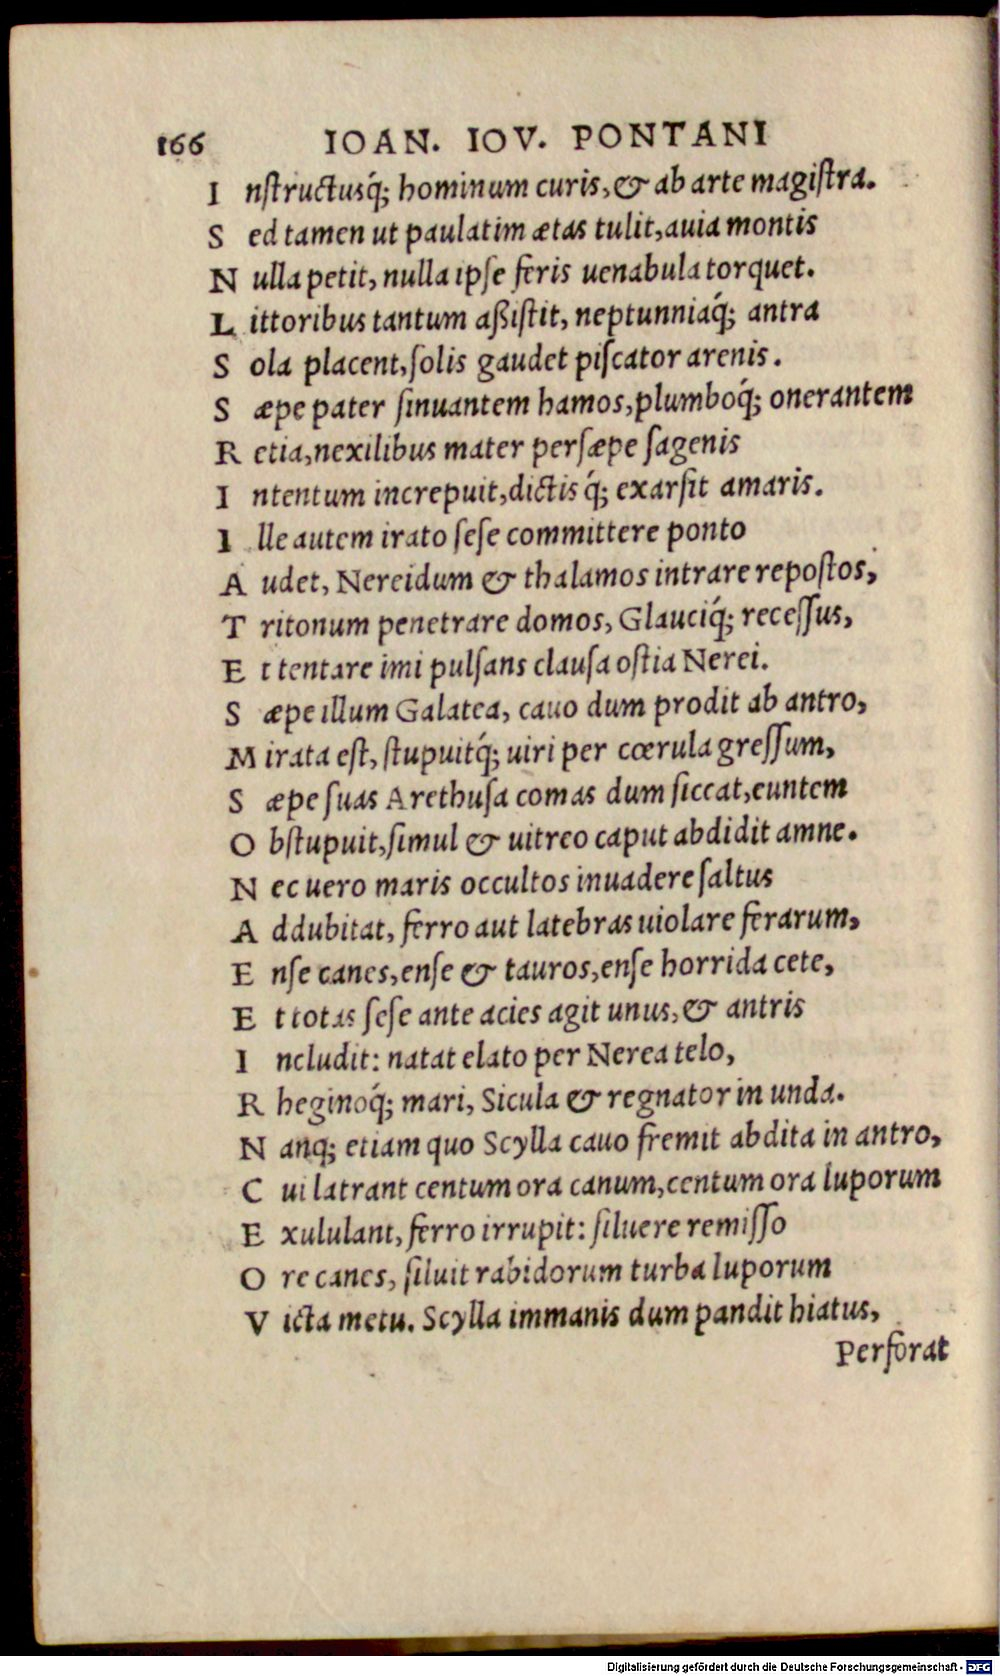 166 IOAN. IOV. PONTANI
I nſtructusq́; hominum curis, & ab arte magiſtra.
S ed tamen ut paulatim ætas tulit, auia montis
N ulla petit, nulla ipſe feris uenabula torquet.
L ittoribus tantum aßiſtit, neptunniaq́; antra
S ola placent, ſolis gaudet piſcator arenis.
S æpe pater ſinuantem hamos, plumboq́; onerantem
R etia, nexilibus mater perſæpe ſagenis
I ntentum increpuit, dictisq́; exarſit amaris.
I lle autem irato ſeſe committere ponto
A udet, Nereidum & thalamos intrare repoſtos,
T ritonum penetrare domos, Glauciq́; receſſus,
E t tentare imi pulſans clauſa oſtia Nerei.
S æpe illum Galatea, cauo dum prodit ab antro,
M irata eſt, ſtupuitq́; uiri per cœrula greſſum,
S æpe ſuas Arethuſa comas dum ſiccat, euntem
O bſtupuit, ſimul & uitreo caput abdidit amne.
N ec uero maris occultos inuadere ſaltus
A ddubitat, ferro aut latebras uiolare ferarum,
E nſe canes, enſe & tauros, enſe horrida cete,
E t totas ſeſe ante acies agit unus, & antris
I ncludit: natat elato per Nerea telo,
R heginoq́; mari, Sicula & regnator in unda.
N anq; etiam quo Scylla cauo fremit abdita in antro,
C ui latrant centum ora canum, centum ora luporum
E xululant, ferro irrupit: ſiluere remiſſo
O re canes, ſiluit rabidorum turba luporum
V icta metu. Scylla immanis dum pandit hiatus,
Perforat
Digitalisierung gefördert durch die Deutsche Forschungsgemeinschaft - DFG